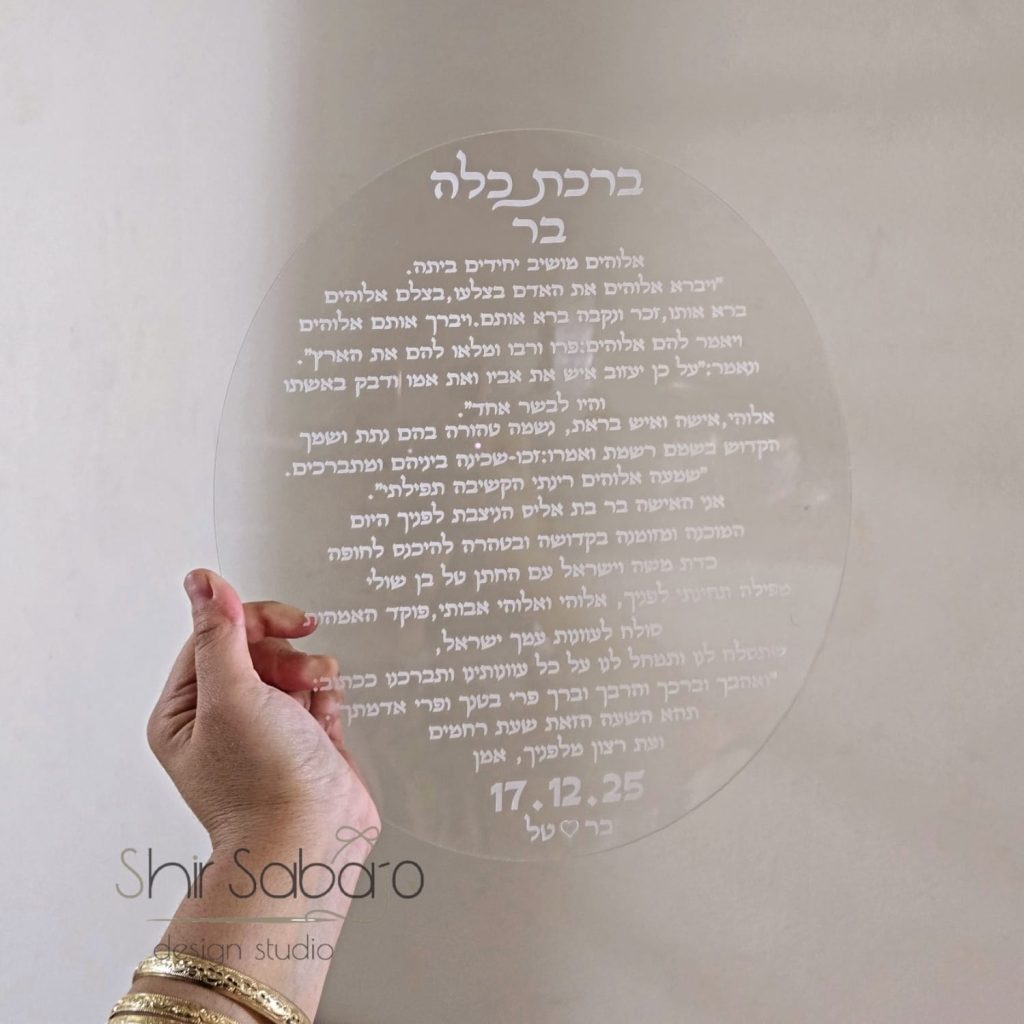 ברכת כלה
בר
אלוהים מושיב יחידים ביתה.
"ויברא אלוהים את האדם בצלעו,בצלם אלוהים
ברא אותו,זכר ונקבה ברא אותם.ויברך אותם אלוהים
ויאמר להם אלוהים:פרו ורבו ומלאו להם את הארץ".
ונאמר:"על כן יעזוב איש את אביו ואת אמו ודבק באשתו
והיו לבשר אחד".
אלוהי,אישה ואיש בראת, נשמה טהורה בהם נתת ושמך
הקדוש בשמם רשמת ואמרו:זכו-שכינה ביניהם ומתברכים.
"שמעה אלוהים רינתי הקשיבה תפילתי".
אני האישה בר בת אליס הניצבת לפניך היום
המוכנה ומזומנה בקדושה ובטהרה להיכנס לחופה
כדת משה וישראל עם החתן טל בן שולי
מפילה תחינתי לפניך, אלוהי ואלוהי אבותי,פוקד האמהות
סולח לעוונות עמך ישראל,
שתסלח לנו ותמחל לנו על כל עוונותינו ותברכנו ככתוב:
"ואהבך וברכך והרבך וברך פרי בטנך ופרי אדמתך
תהא השעה הזאת שעת רחמים
ועת רצון מלפניך, אמן
17.12.25
בר♡טל
Shir Saba-o
design studio